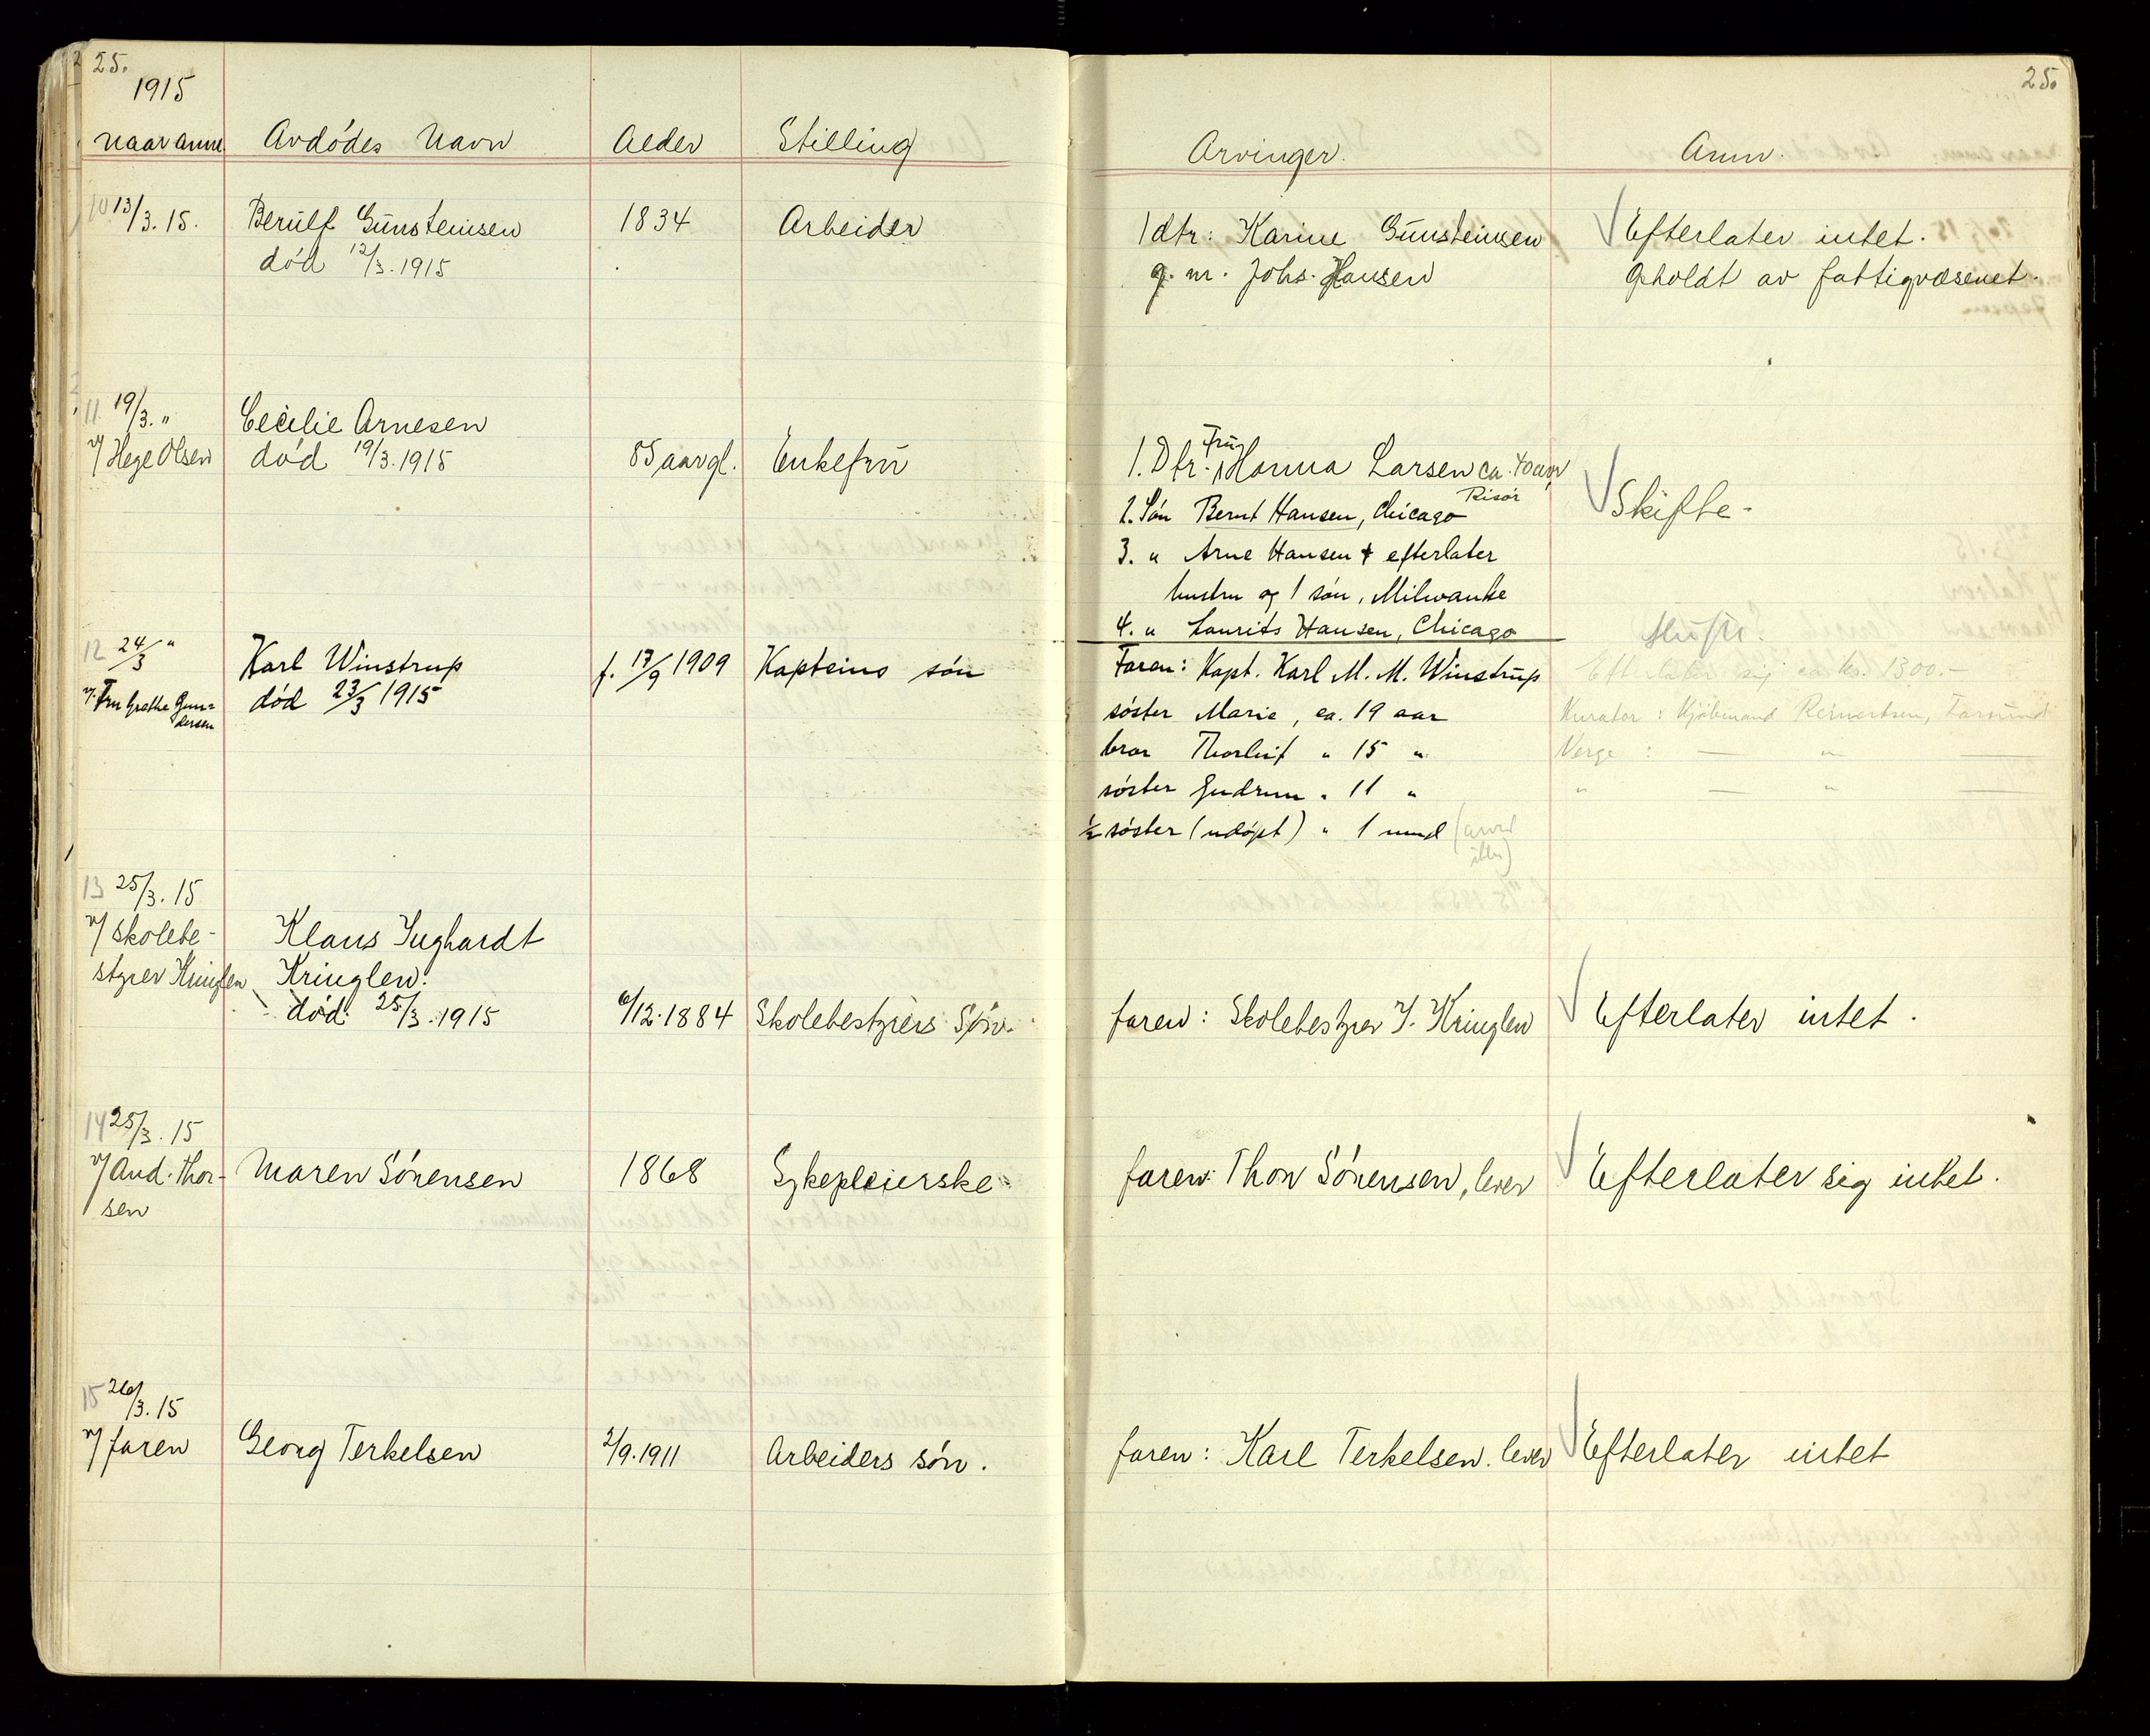 25.
1915
Naar anm. Avdødes Navn Alder Stilling
10 13/3. 15. Berulf Gunsteinsen 1834 Arbeider
død 12/3. 1915
11 19/3. "
Cecilie Arnesen
v/ Hege Olsen død 19/3. 1915 85 aar gl. Enkefru
12 24/3 " Karl Winstrup f. 17/9 1909 Kapteins søn
v. Fru Grethe Gun=
dersen
død 23/3 1915
13 25/3. 15
v/ Skolebe-
styrer Kringlen
Klaus Inghardt
Kringlen.
død 25/3. 1915 6/12. 1884 Skolebestyrers Søn.
14 25/3. 15
v/ And. Thor-
sen
Maren Sørensen 1868 Sykepleierske
15 26/3. 15
v/ faren Georg Terkelsen 2/9. 1911 Arbeiders søn.
25.
Arvinger. Anm.
1 dtr: Karine Gunsteinsen Efterlater intet.
g. m. Johs. Hansen Opholdt av fattigvæsenet.
1. Dtr. Fru Hanna Larsen ca. 40 aar
Risør
Skifte -
2. Søn Bernt Hansen, Chicago
3. " Arne Hansen † efterlater
hustru og 1 søn, Milwauke
4. " Laurits Hansen, Chicago
Faren: Kapt. Karl M. M. Winstrup Efterlater sig ca kr. 1300.-
søster Marie, ca. 19 aar Kurator: Kjøbmand Reinertsen, Farsund
bror Thorleif " 15 " Verge : — " —
søster Gudrun " 11 " " — " —
½ søster (udøpt) " 1 mnd
faren: Skolebestyrer I. Kringlen Efterlater intet.
faren: Thor Sørensen, lever Efterlater sig intet.
faren: Karl Terkelsen. lever Efterlater intet